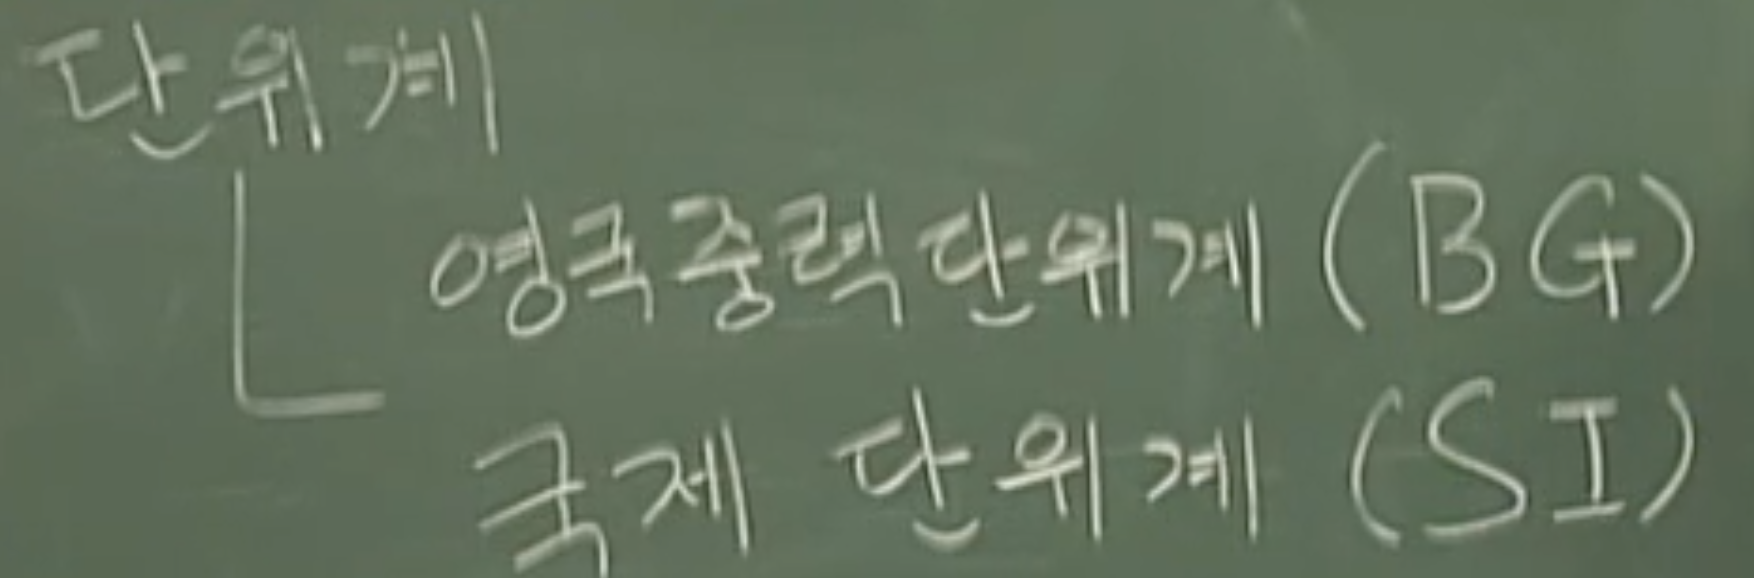 단위계
영국중력단위계 (BG)
국제 단위계 (SI)